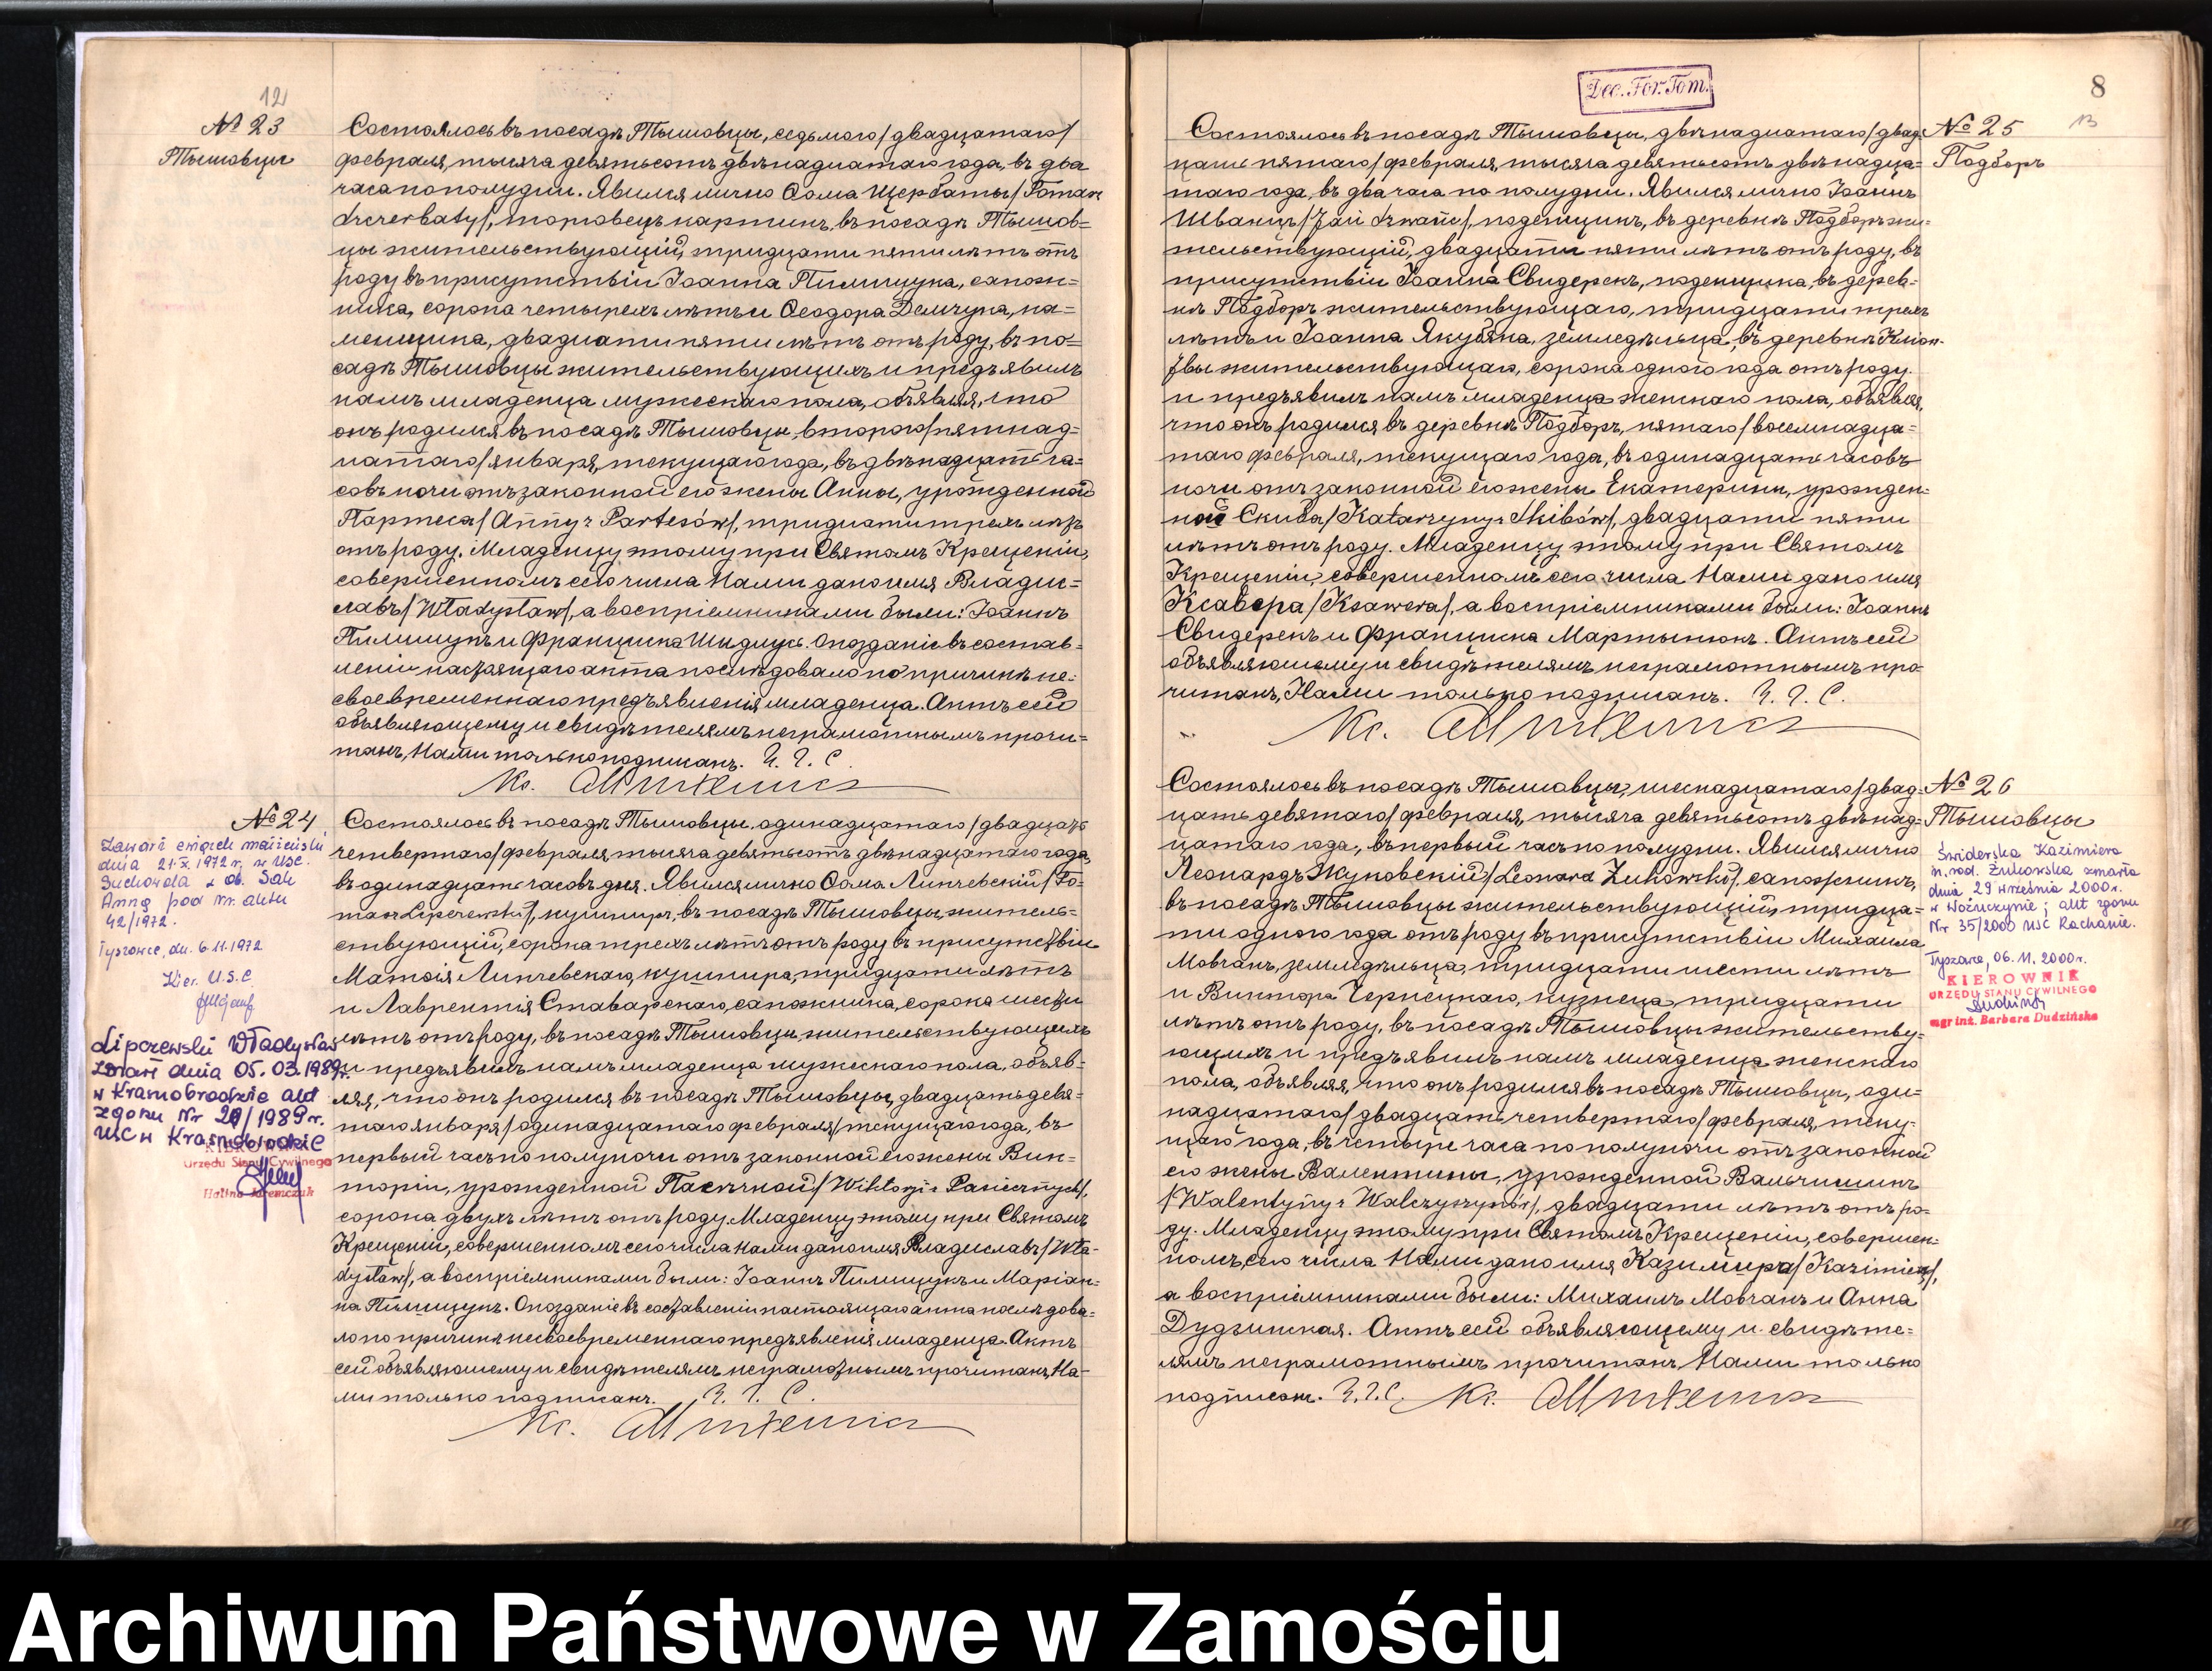 12
№ 23
Тышовцы
Состоялось въ посадѣ Тышовцы, седьмого/двадцатаго/
февраля, тысяча девятьсотъ двѣнадцатаго года, въ два
часа по полудни. Явился лично Ѳома Щербаты/Tomasz
Szczerbaty/, торговецъ картинъ, въ посадѣ Тышов=
цы жительствующій, тридцати пяти лѣтъ отъ
роду въ присутствіи Іоанна Пилищука, сапож=
ника, сорока четырехъ лѣтъ и Ѳеодора Демчука, ка=
менщика, двадцати пяти лѣтъ отъ роду, въ по=
садѣ Тышовцы жительствующихъ и предъявилъ
намъ младенца мужескаго пола, объявляя, что
онъ родился въ посадѣ Тышовцы, второго/пятнад=
цатаго/января, текущаго года, въ двѣнадцать ча=
совъ ночи отъ законной его жены Анны, урожденной
Партеса/Anny z Partesów/, тридцати трехъ лѣтъ
отъ роду. Младенцу этому при Святомъ Крещеніи,
совершенномъ сего числа Нами дано имя Владис=
лавъ/Władysław/, а воспріемниками были: Іоаннъ
Пилищукъ и Франциска Шидлусъ. Опозданіе въ состав=
леніи настоящаго акта послѣдовало по причинѣ не=
своевременнаго предъявленія младенца. Актъ сей
объявляющему и свидѣтелямъ неграмотнымъ прочи=
танъ, Нами только подписанъ.
Кс.
№ 24
Zawarł związek małżeński
dnia 21.X.1972 r. w USC.
Suchowola z ob. Sak
Anną pod nr. aktu
42/1972.
Tyszowce, dn. 6.11.1972
Kier. U.S.C.
Lipczewski Władysław
zmarł dnia 05.03.1989 r.
w Krasnobrodzie akt
zgonu Nr 20/1989 r.
USC w Krasnobrodzie
KIEROWNIK
Urzędu Stanu Cywilnego
Halina Jaremczuk
Состоялось въ посадѣ Тышовцы, одинадцатаго/двадцать
четвертаго/февраля, тысяча девятьсотъ двѣнадцатаго года,
въ одинадцать часовъ дня. Явился лично Ѳома Липчевскій/To=
masz Lipczewski/, кушниръ, въ посадѣ Тышовцы, житель=
ствующій, сорока трехъ лѣтъ отъ роду въ присутствіи
Матвія Липчевскаго, кушнира, тридцати лѣтъ
и Лаврентія Ставарскаго, сапожника, сорока шести
лѣтъ отъ роду, въ посадѣ Тышовцы, жительствующихъ
и предъявилъ намъ младенца мужескаго пола, объяв=
ляя, что онъ родился въ посадѣ Тышовцы, двадцать девя=
таго января/одинадцатаго февраля/текущаго года, въ
первый часъ по полуночи отъ законной его жены Вик=
торіи, урожденной Пасѣчной/Wiktoryi z Pasiecznych/,
сорока двухъ лѣтъ отъ роду. Младенцу этому при Святомъ
Крещеніи, совершенномъ сего числа Нами дано имя Владиславъ/Wła=
dysław/, а воспріемниками были: Іоаннъ Пилищукъ и Маріан=
на Пилищукъ. Опозданіе въ составленіи настоящаго акта послѣдова=
ло по причинѣ несвоевременнаго предъявленія младенца. Актъ
сей объявляющему и свидѣтелямъ неграмотнымъ прочитанъ, На=
ми только подписанъ.
Кс.
Dec. For. Tom.
8
13
№ 25
Подборъ
Состоялось въ посадѣ Тышовцы, двѣнадцатаго/двад=
цать пятаго/февраля, тысяча девятьсотъ двѣнадца=
таго года, въ два часа по полудни. Явился лично Іоаннъ
Шванцъ/Jan Szwanc/, поденщикъ, въ деревнѣ Подборъ жи=
тельствующій, двадцати пяти лѣтъ отъ роду, въ
присутствіи Іоанна Свидерекъ, поденщика, въ дерев=
нѣ Подборъ жительствующаго, тридцати трехъ
лѣтъ и Іоанна Якубяка, земледѣльца, въ деревнѣ
жительствующаго, сорока одного года отъ роду
и предъявилъ намъ младенца женскаго пола, объявляя,
что онъ родился въ деревнѣ Подборъ, пятаго/восемнадца=
таго февраля, текущаго года, въ одинадцать часовъ
ночи отъ законной его жены Екатерины, урожден=
ной Скиба/Katarzyny z Skibów/, двадцати пяти
лѣтъ отъ роду. Младенцу этому при Святомъ
Крещеніи, совершенномъ сего числа Нами дано имя
Ксавера/Ksawera/, а воспріемниками были: Іоаннъ
Свидерекъ и Франциска Мартынюкъ. Актъ сей
объявляющему и свидѣтелямъ неграмотнымъ про=
читанъ, Нами только подписанъ.
Кс.
№ 26
Тышовцы
Świderska Kazimiera
z. rod. Żukowska zmarła
dnia 29 września 2000 r.
w Wożuczynie; akt zgonu
Nr 35/2000 USC Rachanie.
Tyszowce, 06.11.2000 r.
KIEROWNIK
URZĘDU STANU CYWILNEGO
mgr inż. Barbara Dudzińska
Состоялось въ посадѣ Тышовцы, шеснадцатаго/двад=
цать девятаго/февраля, тысяча девятьсотъ двѣнад=
цатаго года, въ первый часъ по полудни. Явился лично
Леонардъ Жуковскій/Leonard Żukowski/, сапожникъ,
въ посадѣ Тышовцы жительствующій, тридца=
ти одного года отъ роду въ присутствіи Михаила
Мовчанъ, земледѣльца, тридцати шести лѣтъ
и Виктора Чернецкаго, кузнеца, тридцати
лѣтъ отъ роду, въ посадѣ Тышовцы жительству=
ющихъ и предъявилъ намъ младенца женскаго
пола, объявляя, что онъ родился въ посадѣ Тышовцы, оди=
надцатаго/двадцать четвертаго/февраля, теку=
щаго года, въ четыре часа по полуночи отъ законной
его жены Валентины, урожденной Вальчишинъ
/Walentyny z Walczyszynów/, двадцати лѣтъ отъ ро=
ду. Младенцу этому при Святомъ Крещеніи, совершен=
номъ сего числа Нами дано имя Казимира/Kazimiera/,
а воспріемниками были: Михаилъ Мовчанъ и Анна
Дудзинская. Актъ сей объявляющему и свидѣте=
лямъ неграмотнымъ прочитанъ, Нами только
подписанъ. Кс.
Archiwum Państwowe w Zamościu